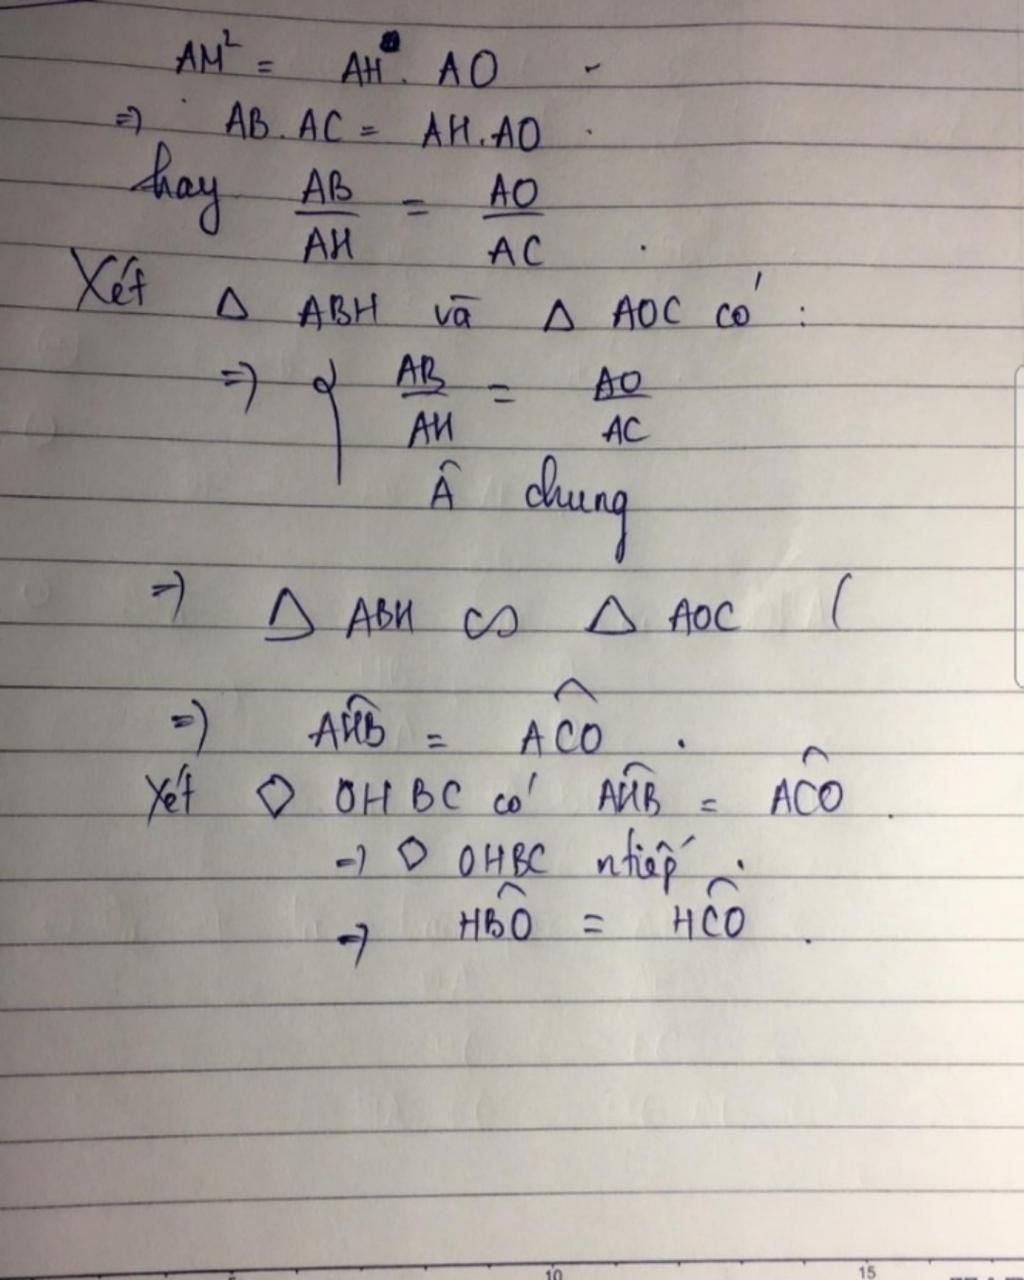 AM² = AH . AO
=) AB . AC = AH . AO .
hay AB/AH = AO/AC .
Xét Δ ABH và Δ AOC có :
=) { AB/AH = AO/AC
Â chung
=) Δ ABH ∽ Δ AOC (
=) AĤB = AĈO .
Xét ◇ OHBC có AĤB = AĈO .
=) ◇ OHBC ntiếp .
=) HB̂O = HĈO .
10 15